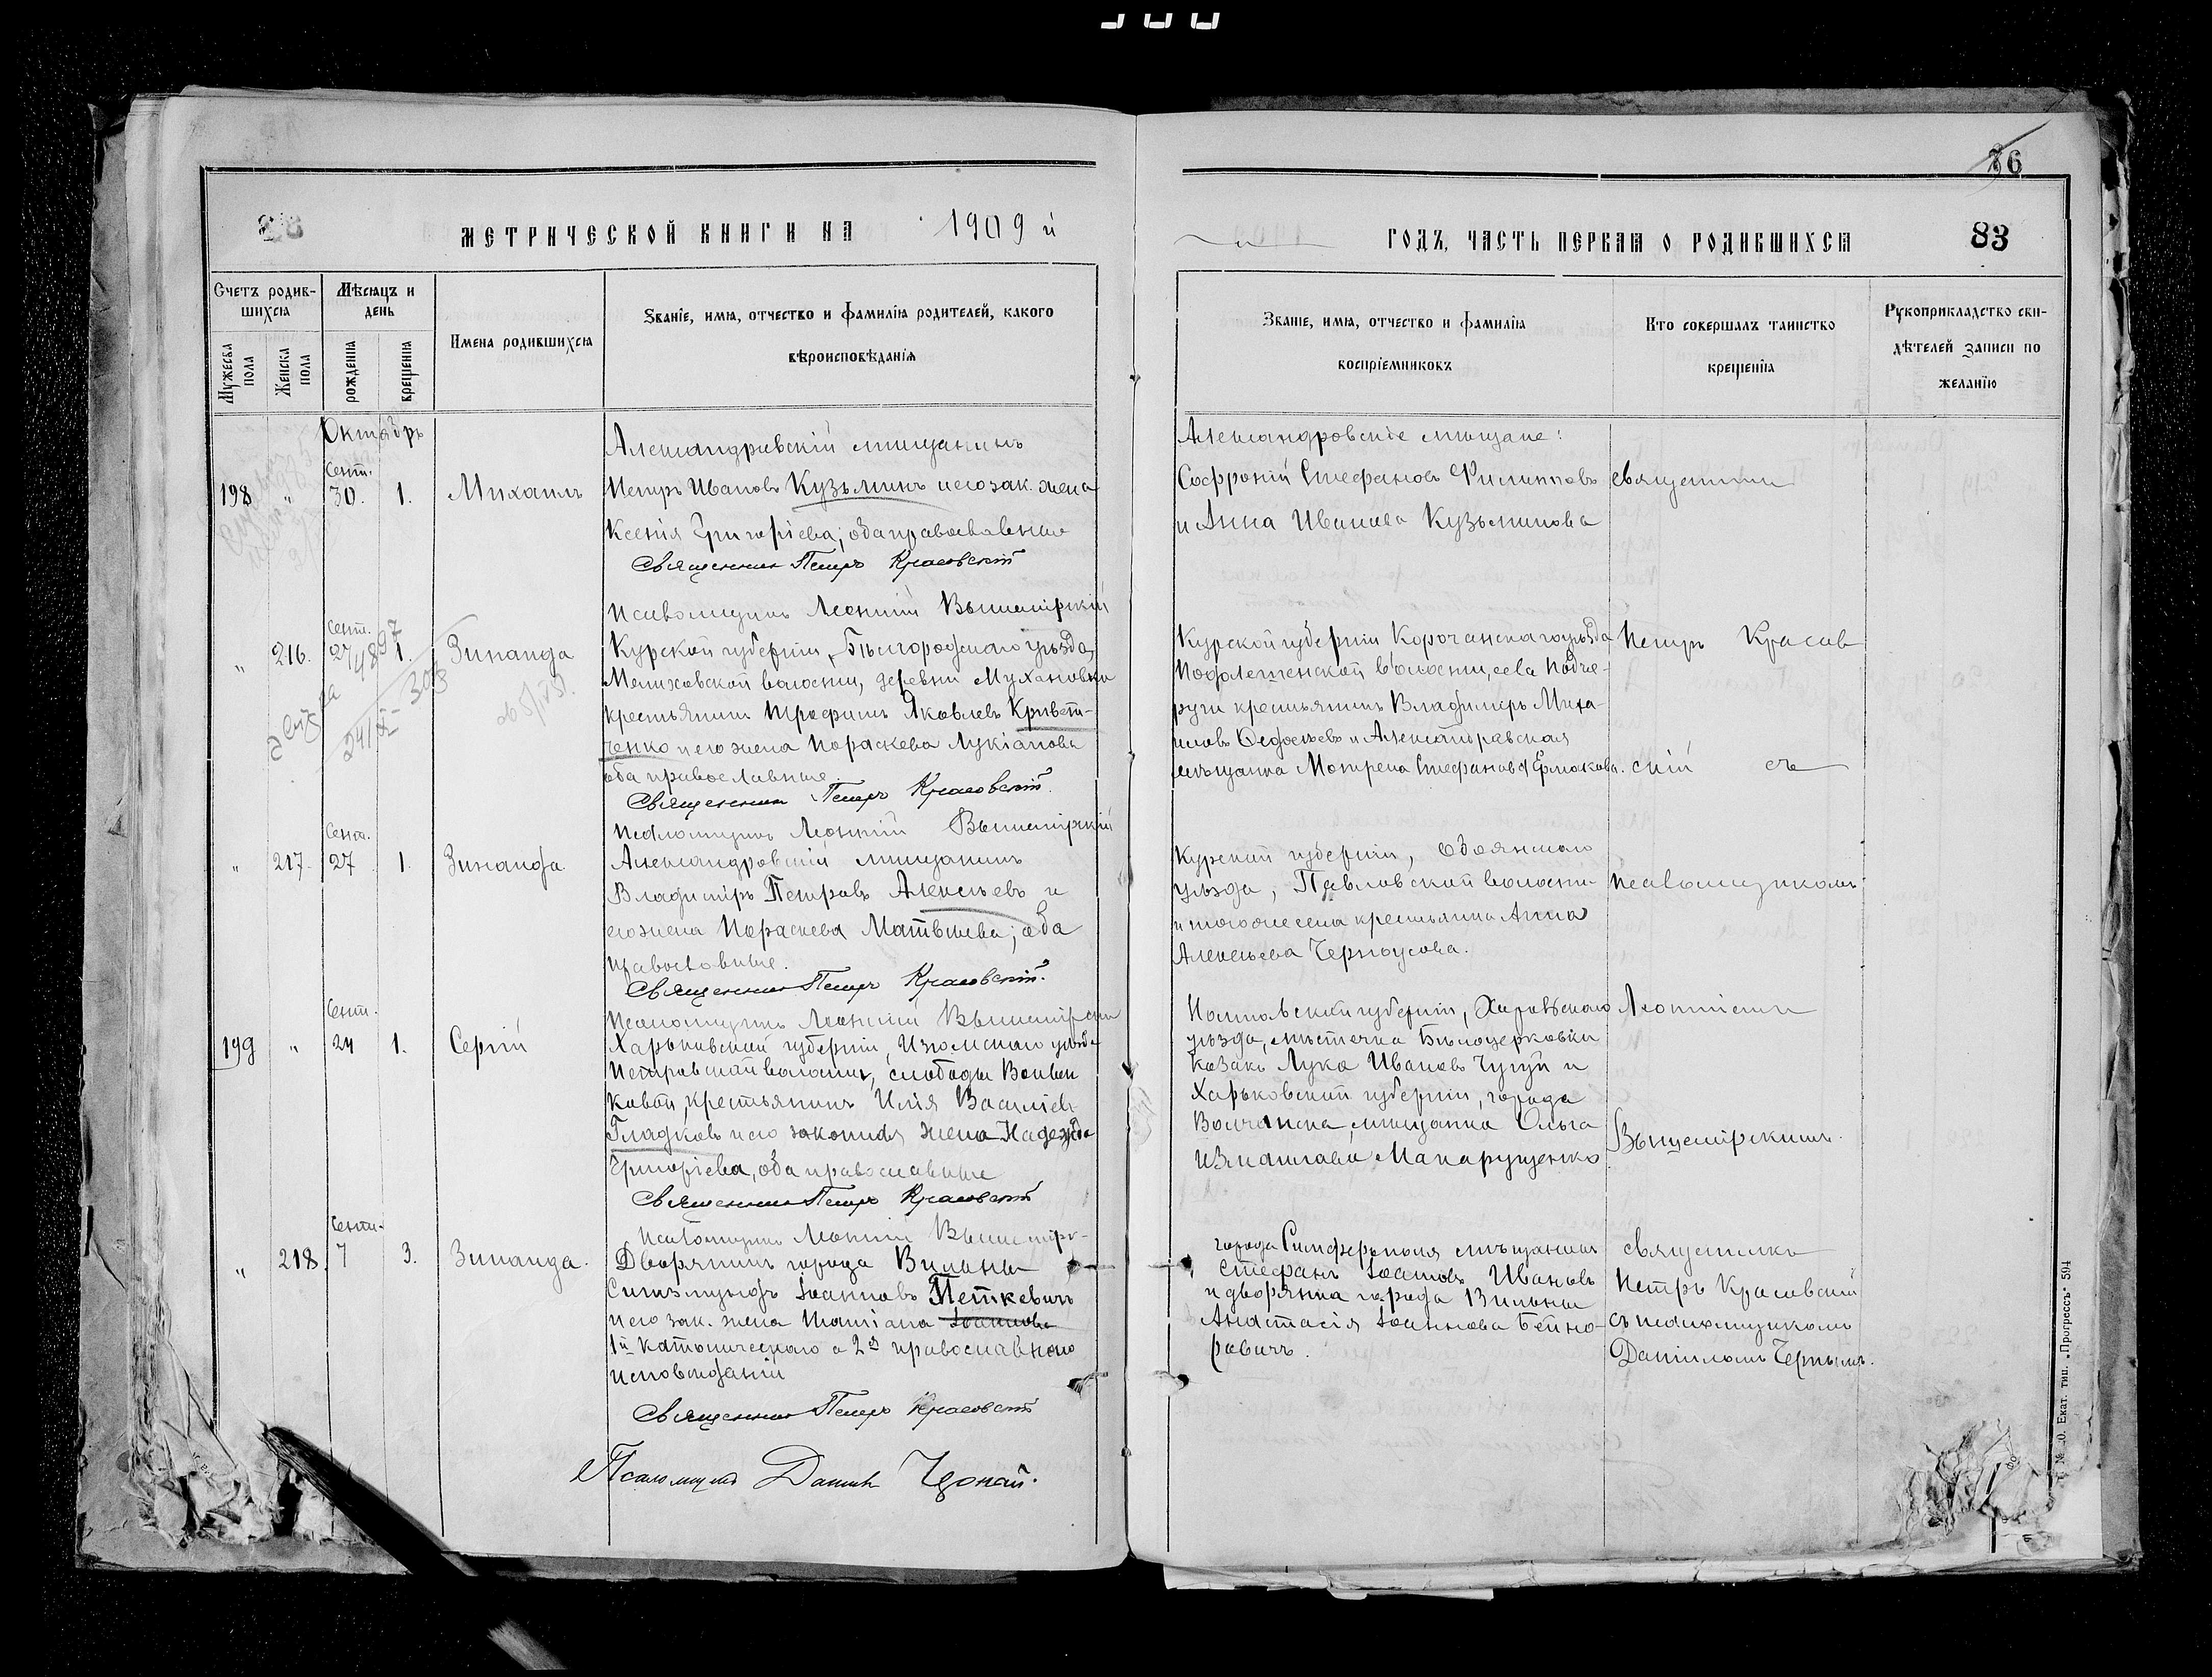 86
83
МЕТРИЧЕСКОЙ КНИГИ НА 1909 й
ГОДЪ, ЧАСТЬ ПЕРВАЯ О РОДИВШИХСЯ
Счетъ родив-
шихся
Мѣсяцъ и
день
Мужеска
пола
Женска
пола
рожденія
крещенія
Имена родившихся
Званіе, имя, отчество и фамилія родителей, какого
вѣроисповѣданія
Званіе, имя, отчество и фамилія
воспріемниковъ
Кто совершалъ таинство
крещенія
Рукоприкладство сви-
дѣтелей записи по
желанію
Октябрь
198 " Сент. 30. 1. Михаилъ
Александровскій мещанинъ
Петръ Ивановъ Кузьминъ и его зак. жена
Ксенія Григоріева; оба православные
Священникъ Петръ Красовскій
Псаломщикъ Леонтій Вышемірскій
Александровскіе мещане:
Софроній Стефановъ Филипповъ
и Анна Иванова Кузьминова
" 216. Сент. 27 1. Зинаида
Курской губерніи, Бѣлгородскаго уѣзда,
Мелиховской волости, деревни Мухановки
крестьянинъ Трофимъ Яковлевъ Кривет-
ченко и его жена Параскева Лукіанова
оба православные
Священникъ Петръ Красовскій.
Псаломщикъ Леонтій Вышемірскій
Курской губерніи Корочанскаго уѣзда
волости, села
крестьянинъ Владиміръ Миха-
иловъ и Александровская
мѣщанка Матрена Стефанова Ермакова.
" 217. Сент. 27 1. Зинаида.
Александровскій мещанинъ
Владиміръ Петровъ Алексѣевъ и
его жена Параскева Матвѣева; оба
православные.
Священникъ Петръ Красовскій.
Псаломщикъ Леонтій Вышемірскій
Курской губерніи, Обоянскаго
уѣзда, Павловской волости
и того же села крестьянка Анна
Алексѣева Черноусова.
199 " Сент. 24 1. Сергій
Харьковской губерніи, Изюмскаго уѣзда
Петровской волости, слободы
крестьянинъ Илія Василіевъ
Гладковъ и его законная жена Надежда
Григоріева, оба православные
Священникъ Петръ Красовскій
Псаломщикъ Леонтій Вышемірс-
Полтавской губерніи,
уѣзда, мѣстечка Бѣлоцерковки
казакъ Лука Ивановъ Чугуй и
Харьковской губерніи, города
Волчанска, мещанка Ольга
Измаилова Макарущенко
священникъ
Петръ Красов
скій съ
псаломщикомъ
Леонтіемъ
Вышемірскимъ.
" 218. Сент. 7 3. Зинаида.
Дворянинъ города Вильны
Сигизмундъ Іоанновъ Петкевичъ
и его зак. жена Татіана Іоаннова
1й католическаго а 2я православнаго
исповѣданій
Священникъ Петръ Красовскій
Псаломщикъ Даніилъ Чорный.
города Симферополя мѣщанинъ
Стефанъ Іоанновъ Ивановъ
и дворянка города Вильны
Анастасія Іоаннова Бейно-
ровичъ.
священникъ
Петръ Красовскій
съ псаломщикомъ
Даніиломъ Чернымъ.
Екат. тип. „Прогрессъ" 594